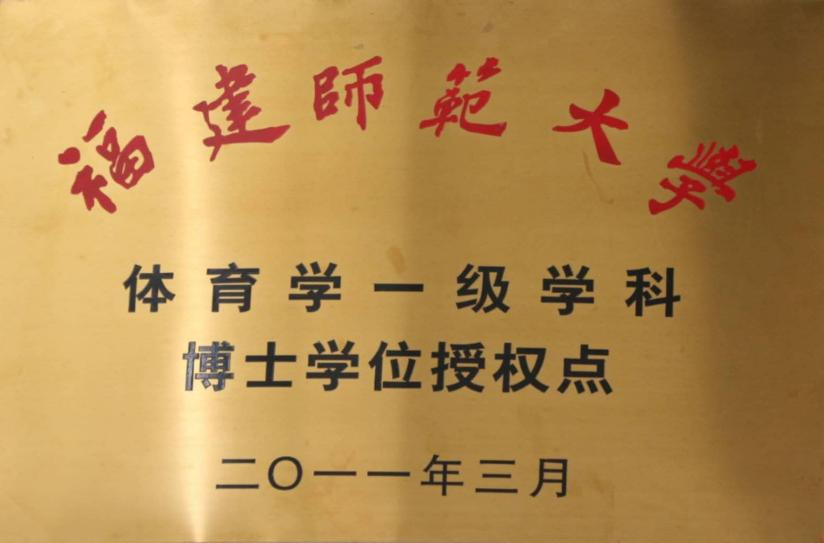 福建師範大學
体育学一级学科
博士学位授权点
二〇一一年三月